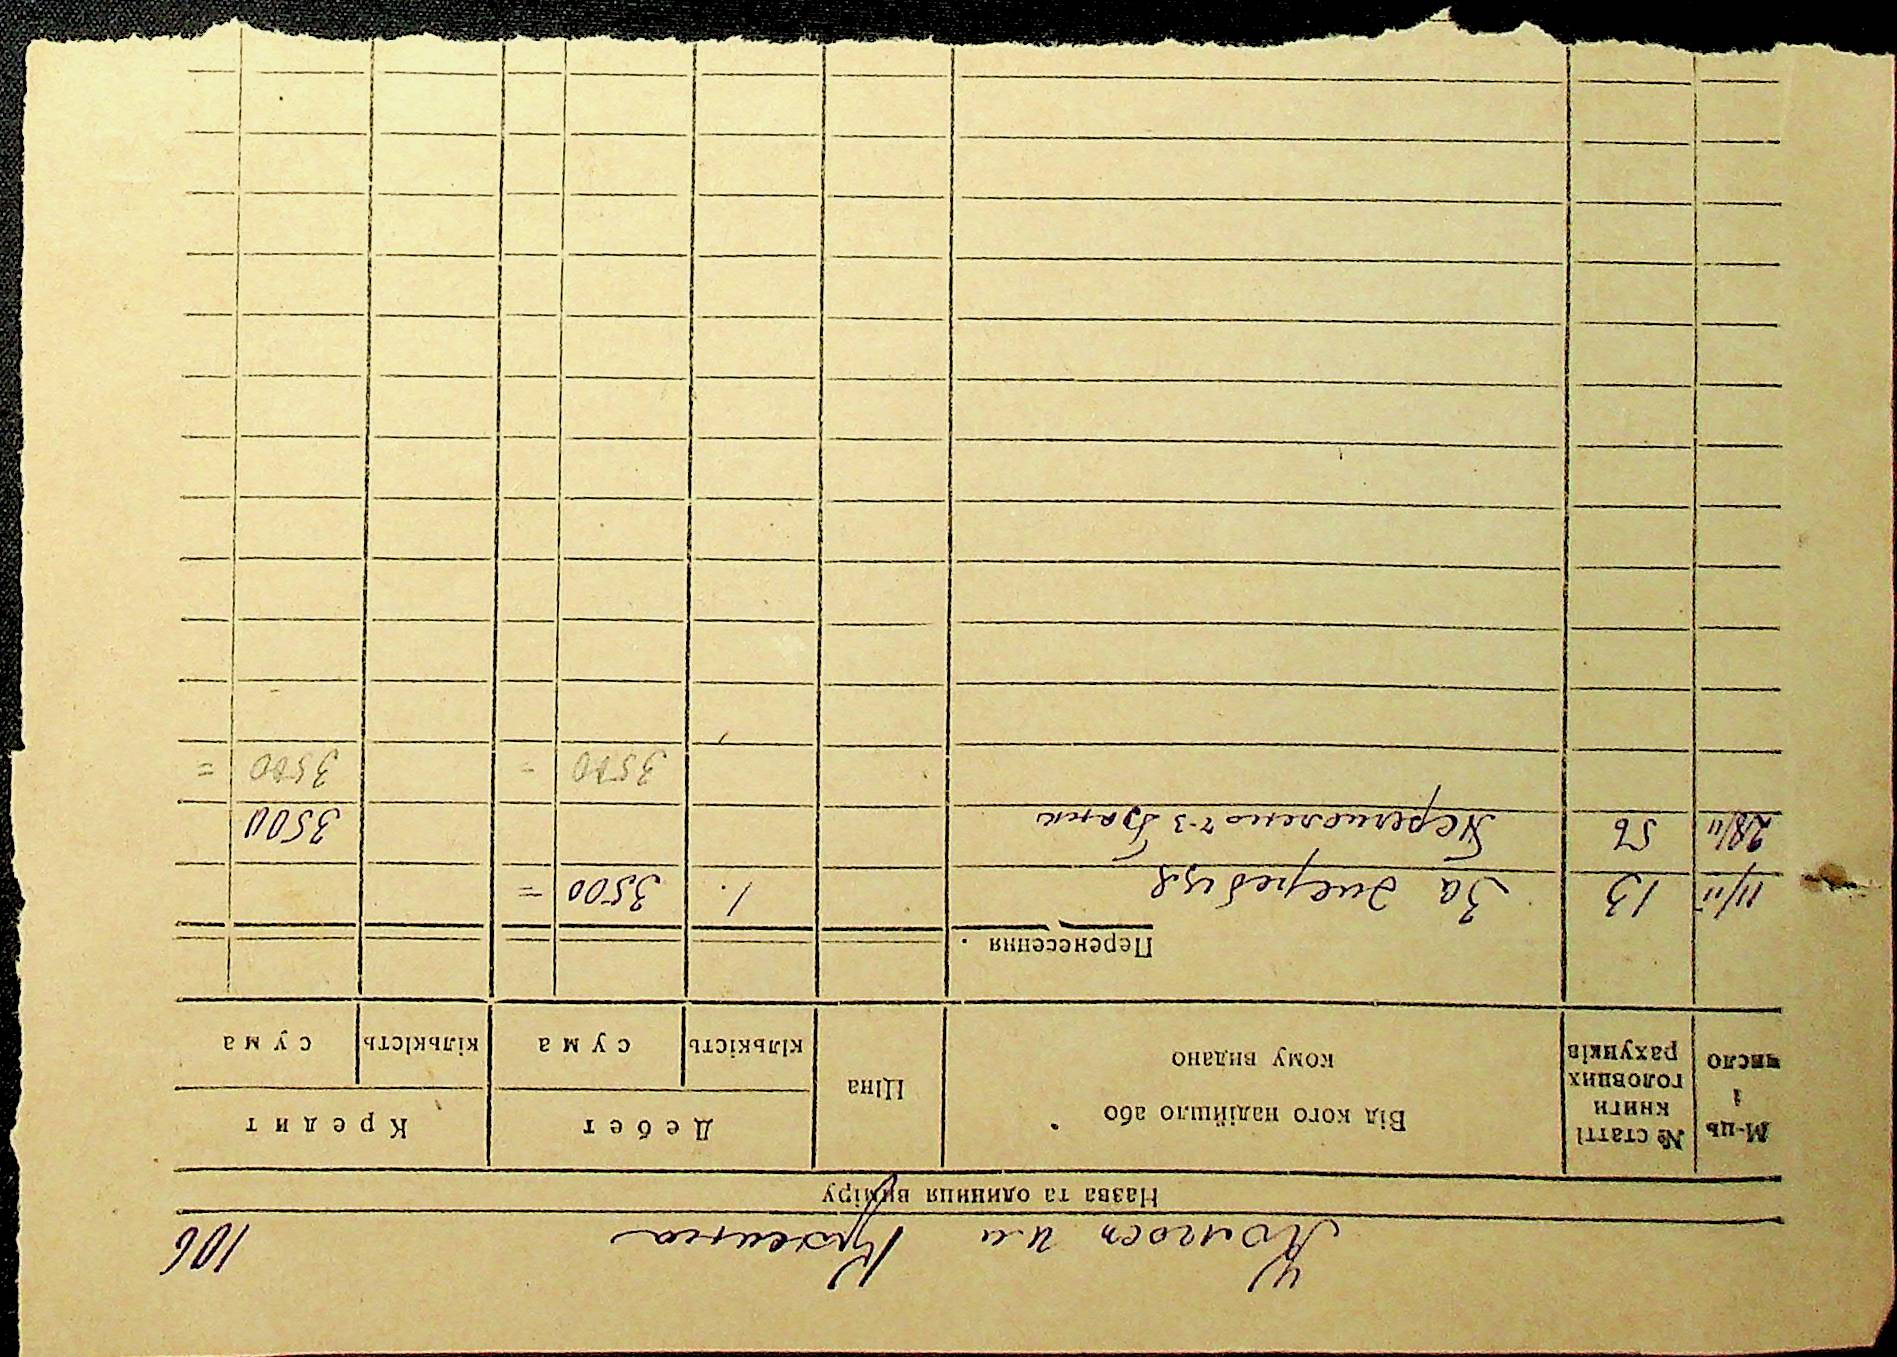 Колхоз им Кр 106
Назва та одиниця виміру
М-ць і число
№ статті книги головних рахунків
Від кого надійшло або кому видано
Ціна
Дебет
кількість
сума
Кредит
кількість
сума
Перенесення .
11/II 13 За 1. 3500 =
28/II 56 Перечислено ч-з Банк 3500
3500 = 3500 =